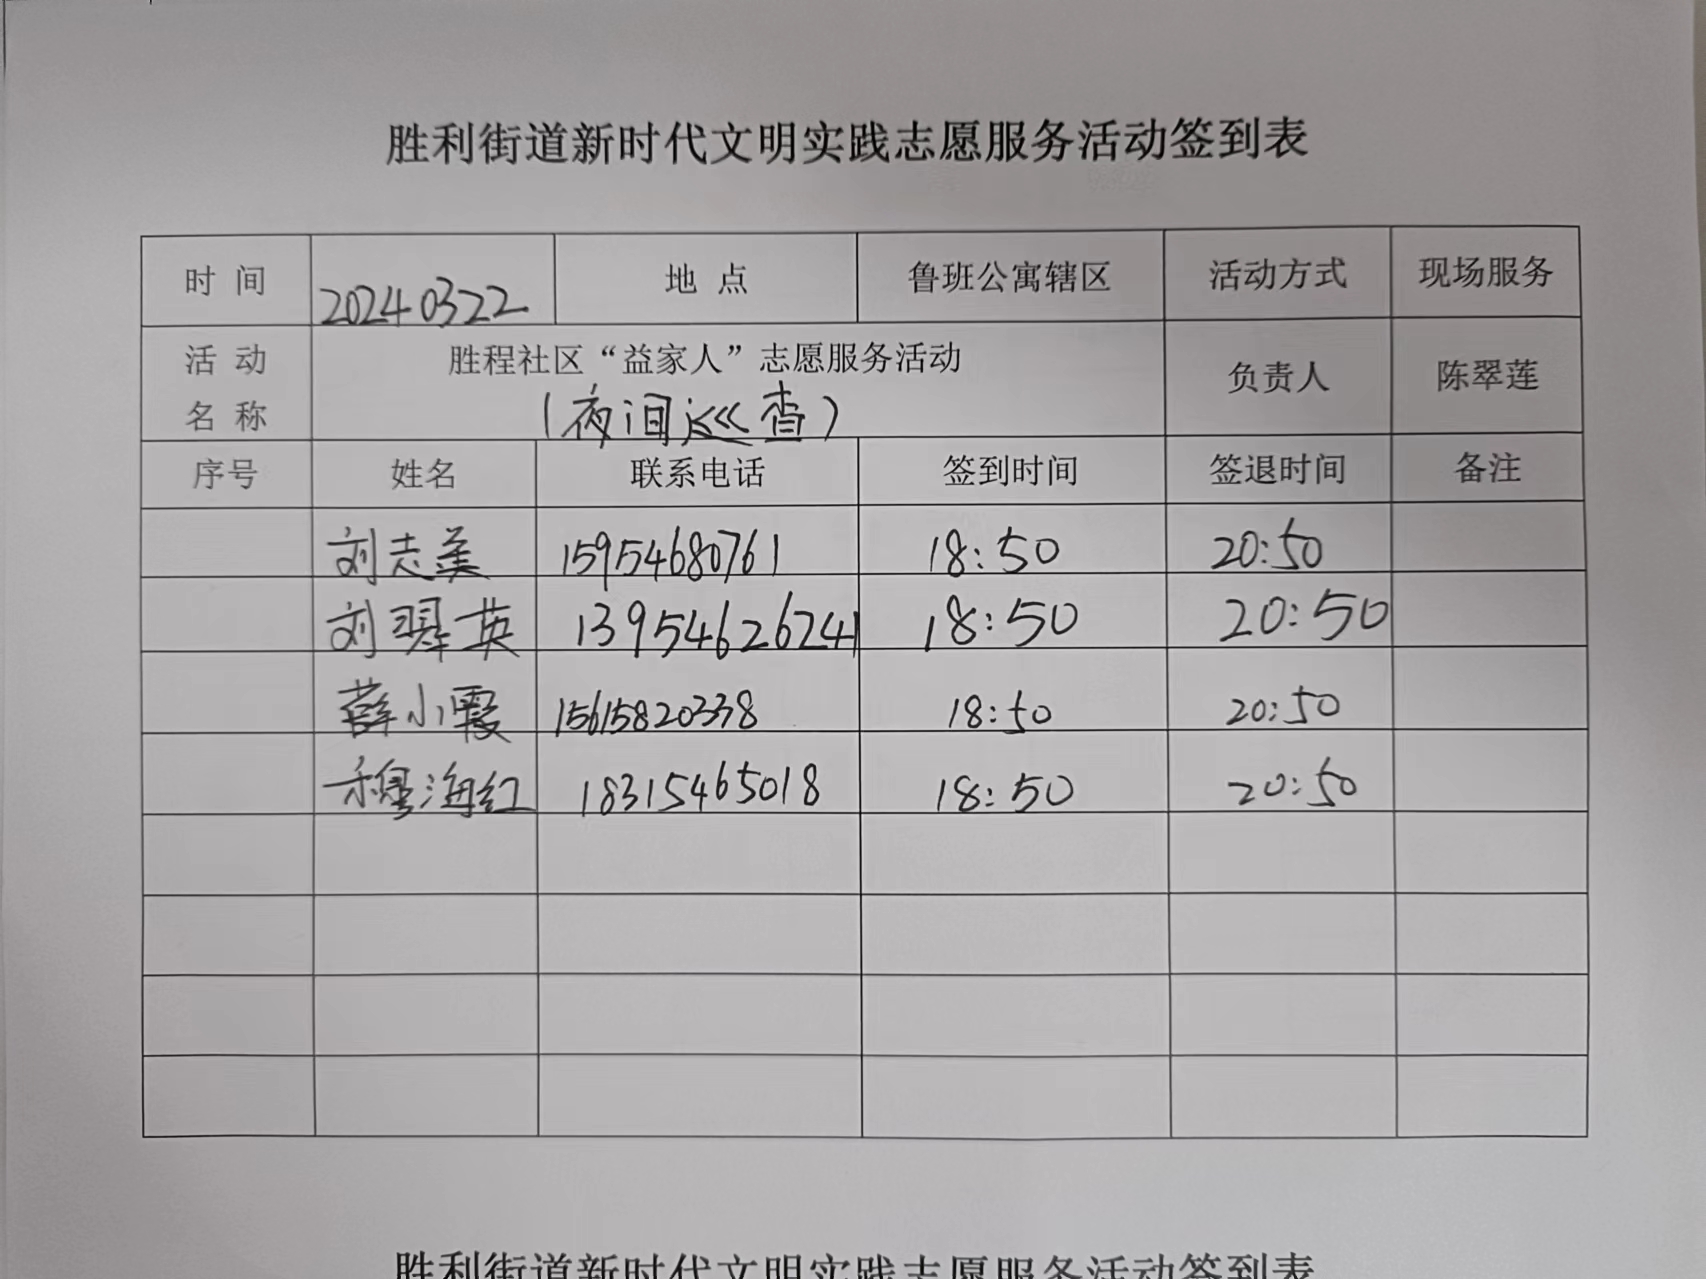 胜利街道新时代文明实践志愿服务活动签到表
时 间 20240322 地 点 鲁班公寓辖区 活动方式 现场服务
活 动 名 称 胜程社区“益家人”志愿服务活动 负责人 陈翠莲
(夜间巡查)
序号 姓名 联系电话 签到时间 签退时间 备注
刘志美 15954680761 18:50 20:50
刘翠英 13954626241 18:50 20:50
薛小霞 15615820338 18:50 20:50
穆海红 18315465018 18:50 20:50
胜利街道新时代文明实践志愿服务活动签到表